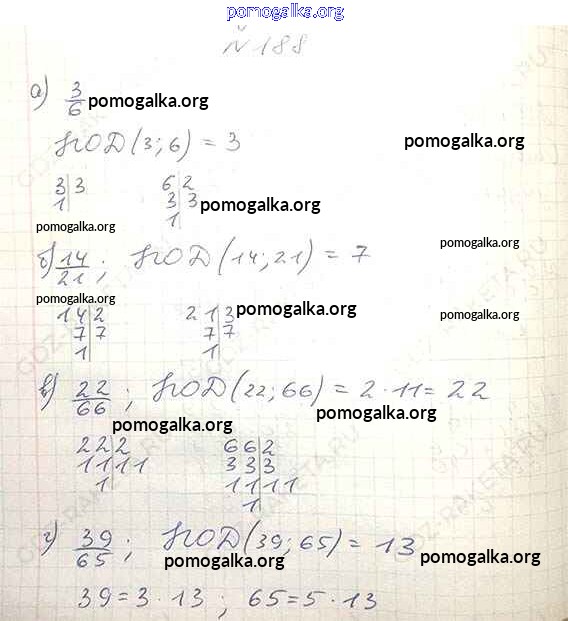 pomogalka.org
№ 188
а) 3/6 pomogalka.org
НОД(3;6) = 3 pomogalka.org
3|3 6|2
1| 3|3 pomogalka.org
1|
pomogalka.org
б) 14/21; НОД(14;21) = 7 pomogalka.org
pomogalka.org
14|2 21|3 pomogalka.org pomogalka.org
7|7 7|7
1| 1|
в) 22/66; НОД(22;66) = 2·11 = 22
pomogalka.org pomogalka.org
22|2 66|2
11|11 33|3
1| 11|11
1|
г) 39/65; НОД(39;65) = 13
pomogalka.org pomogalka.org
39=3·13; 65=5·13